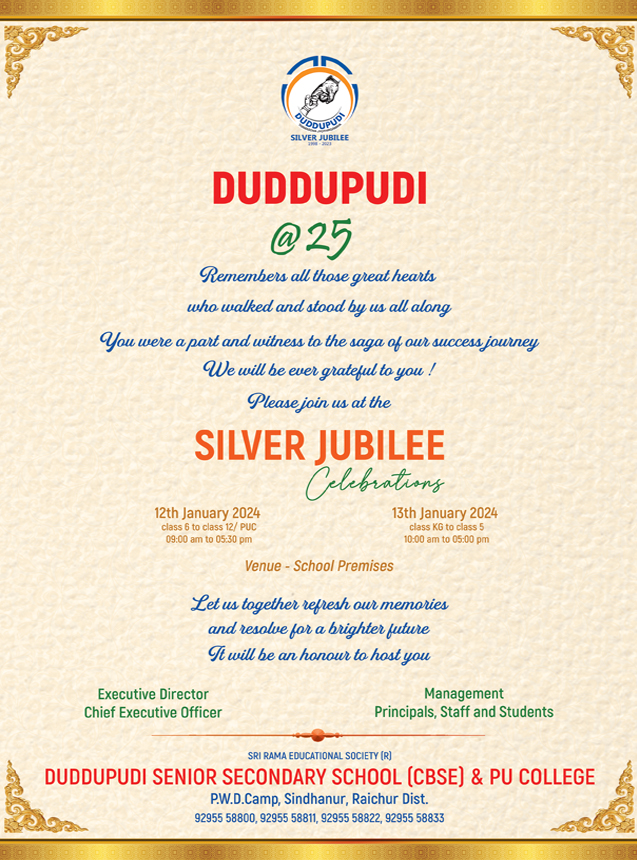 DUDDUPUDI
SILVER JUBILEE
1998 - 2023
DUDDUPUDI
@25
Remembers all those great hearts
who walked and stood by us all along
You were a part and witness to the saga of our success journey
We will be ever grateful to you !
Please join us at the
SILVER JUBILEE
Celebrations
12th January 2024
class 6 to class 12/ PUC
09:00 am to 05:30 pm
13th January 2024
class KG to class 5
10:00 am to 05:00 pm
Venue - School Premises
Let us together refresh our memories
and resolve for a brighter future
It will be an honour to host you
Executive Director
Chief Executive Officer
Management
Principals, Staff and Students
SRI RAMA EDUCATIONAL SOCIETY (R)
DUDDUPUDI SENIOR SECONDARY SCHOOL (CBSE) & PU COLLEGE
P.W.D.Camp, Sindhanur, Raichur Dist.
92955 58800, 92955 58811, 92955 58822, 92955 58833